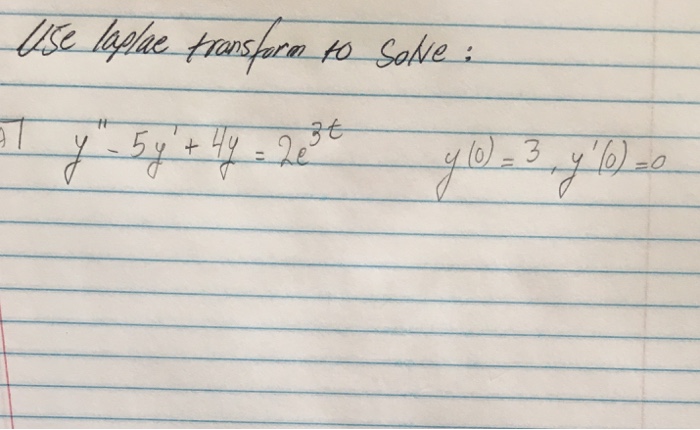 Use laplae transform to Solve :
y'' - 5y' + 4y = 2e^3t y(0) = 3, y'(0) = 0